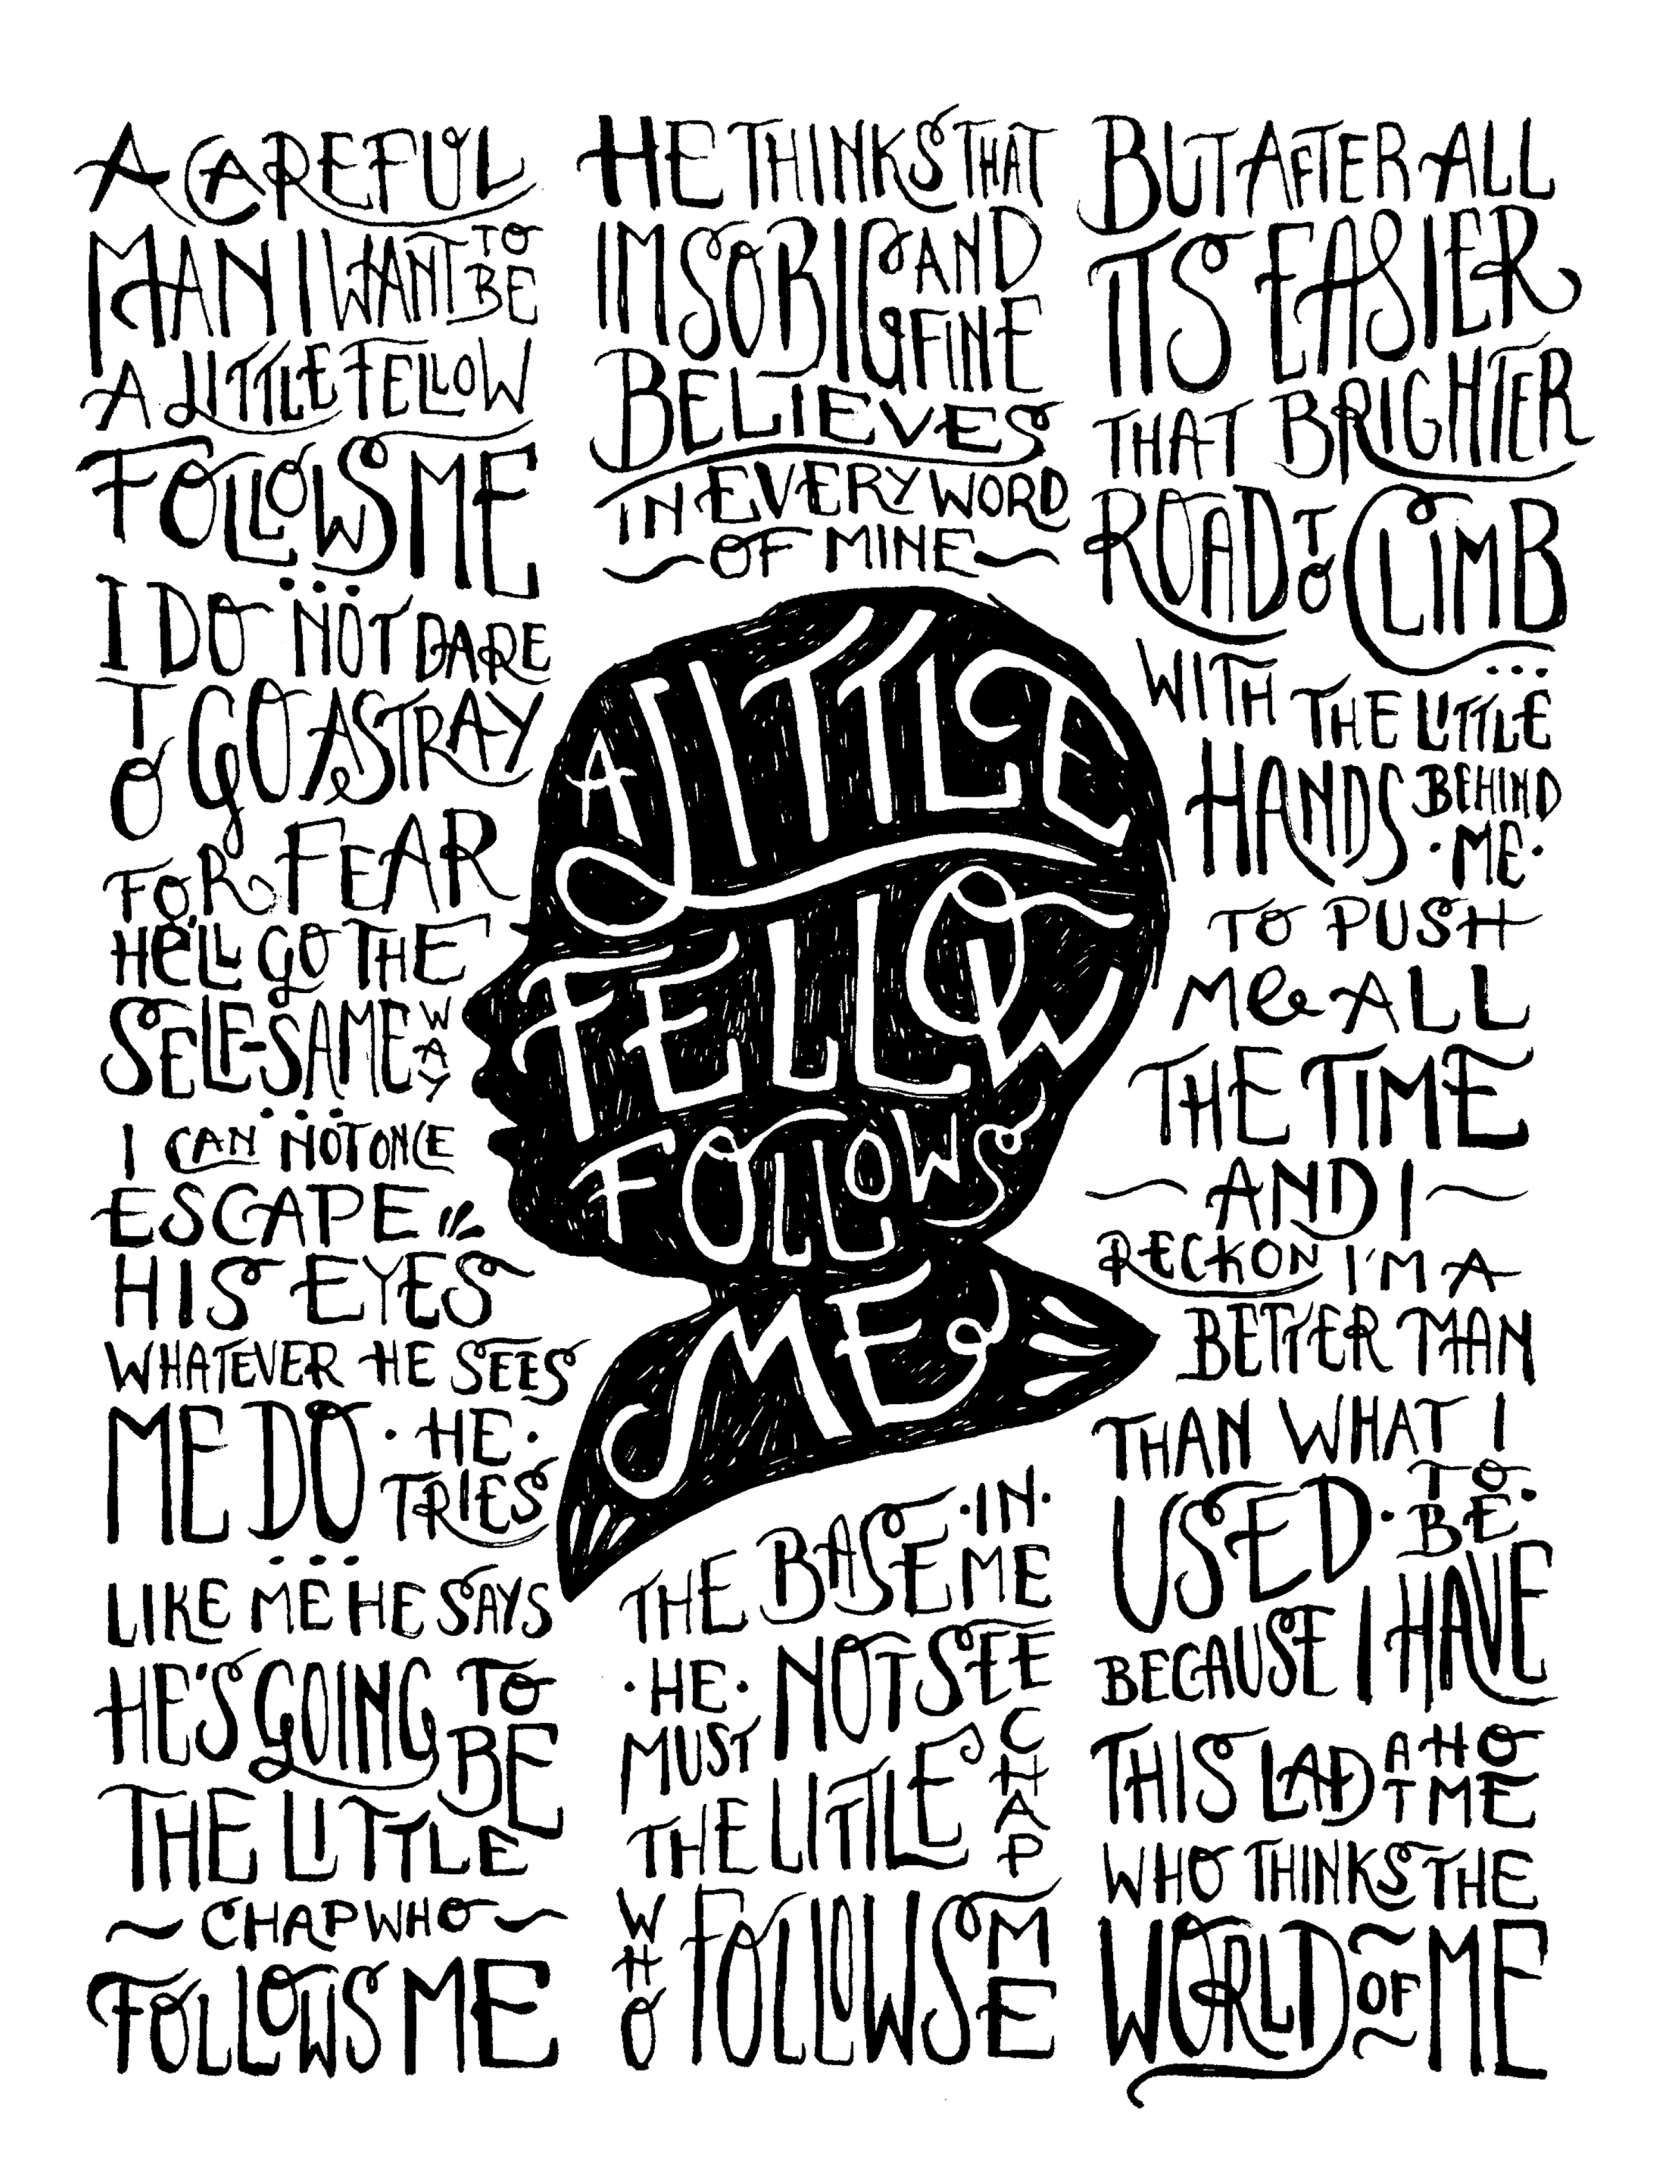 A CAREFUL
MAN I WANT TO BE
A LITTLE FELLOW
FOLLOWS ME
I DO NOT DARE
TO GO ASTRAY
FOR FEAR
HE'LL GO THE
SELF-SAME WAY
I CAN NOT ONCE
ESCAPE
HIS EYES
WHATEVER HE SEES
ME DO HE TRIES
LIKE ME HE SAYS
HE'S GOING TO BE
THE LITTLE
CHAP WHO
FOLLOWS ME
HE THINKS THAT
IM SO BIG AND FINE
BELIEVES
IN EVERY WORD
OF MINE
A LITTLE
FELLOW
FOLLOWS
ME
THE BASE IN ME
HE MUST NOT SEE
THE LITTLE CHAP
WHO FOLLOWS ME
BUT AFTER ALL
ITS EASIER
THAT BRIGHTER
ROAD TO CLIMB
WITH THE LITTLE
HANDS BEHIND ME
TO PUSH
ME ALL
THE TIME
AND I
RECKON I'M A
BETTER MAN
THAN WHAT I
USED TO BE
BECAUSE I HAVE
THIS LAD AT HOME
WHO THINKS THE
WORLD OF ME